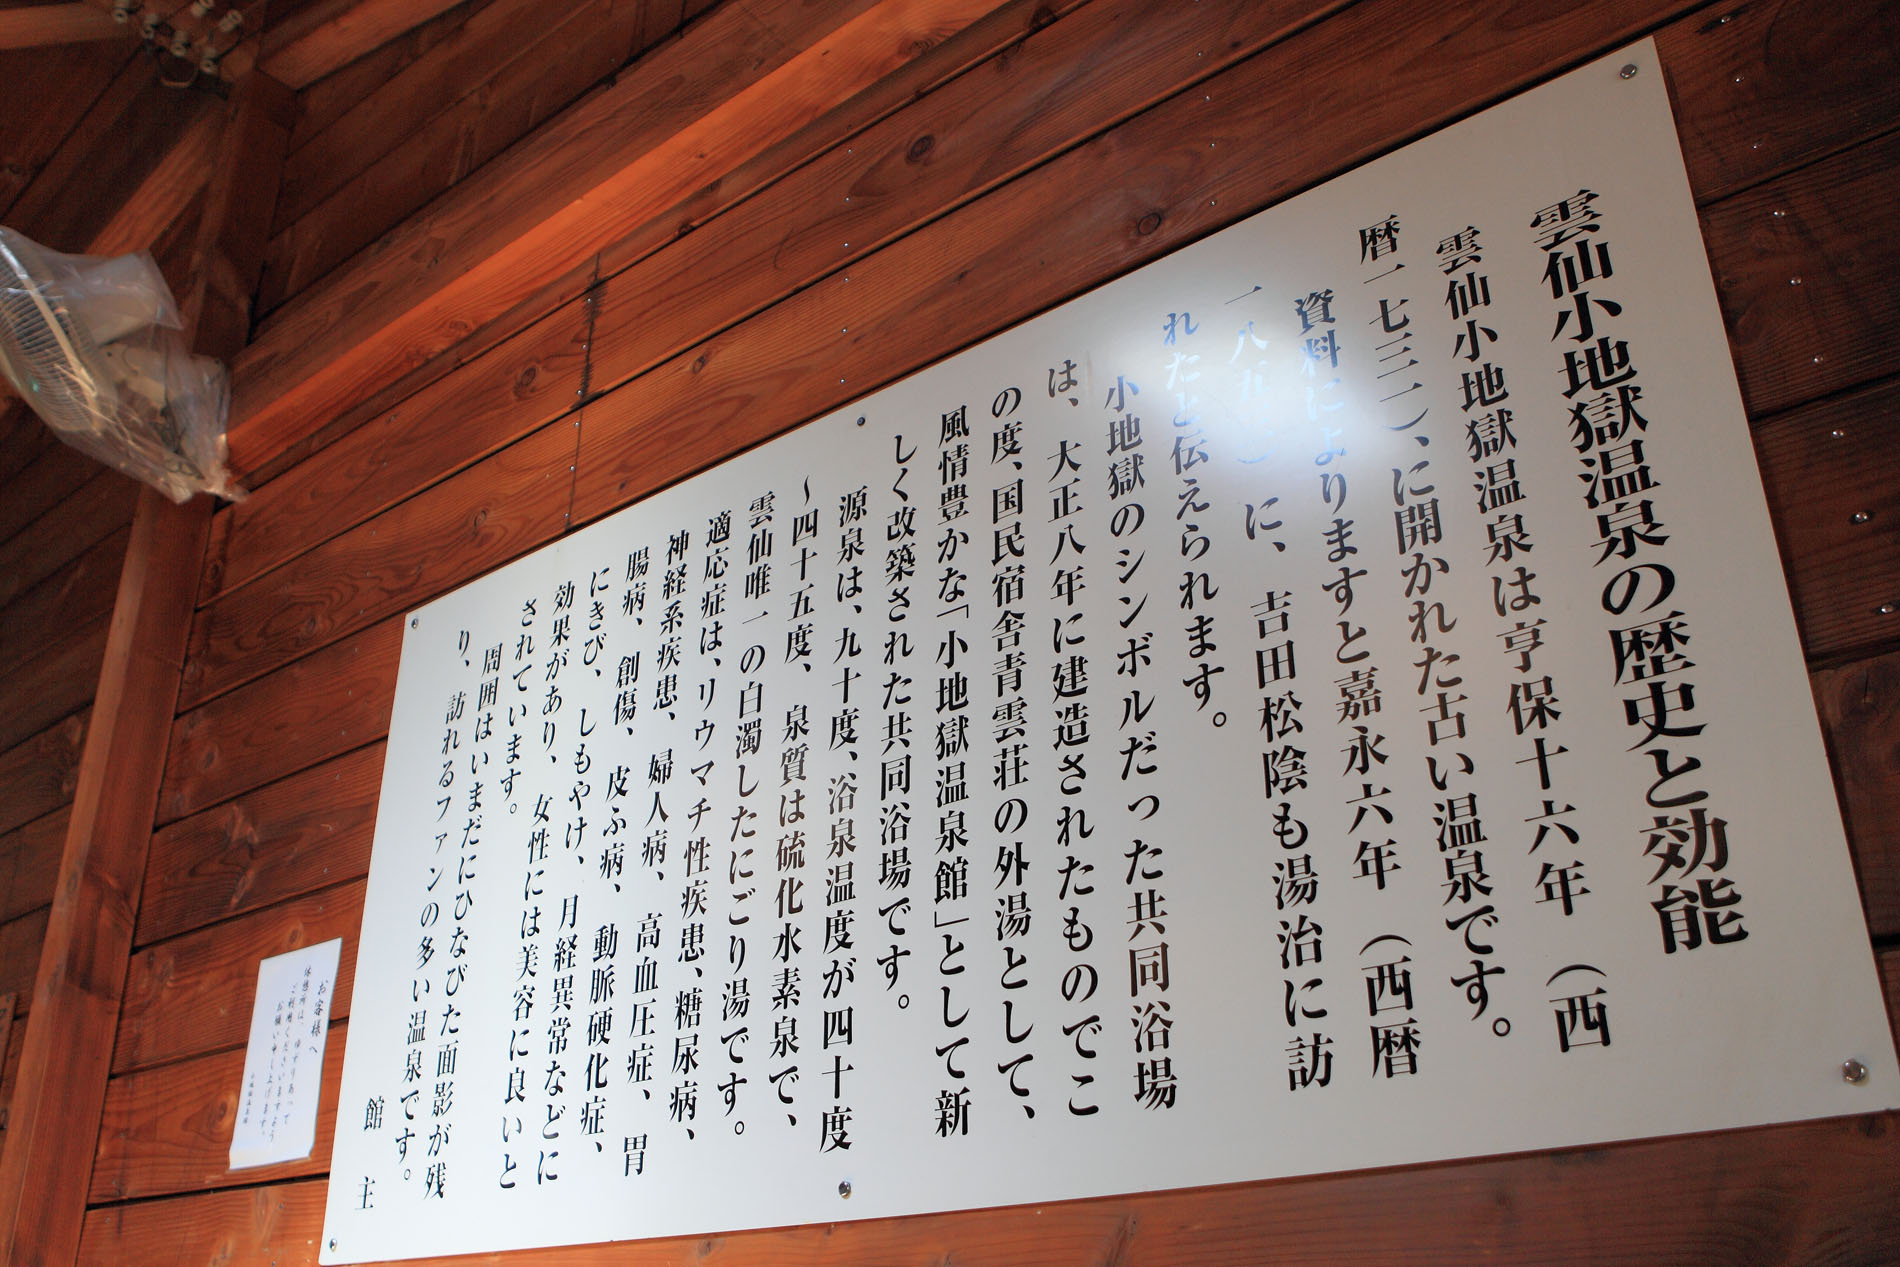 雲仙小地獄温泉の歴史と効能
雲仙小地獄温泉は享保十六年（西
暦一七三一）、に開かれた古い温泉です。
資料によりますと嘉永六年（西暦
一八九）に、吉田松陰も湯治に訪
れたと伝えられます。
小地獄のシンボルだった共同浴場
は、大正八年に建造されたものでこ
の度、国民宿舎青雲荘の外湯として、
風情豊かな「小地獄温泉館」として新
しく改築された共同浴場です。
源泉は、九十度、浴泉温度が四十度
〜四十五度、泉質は硫化水素泉で、
雲仙唯一の白濁したにごり湯です。
適応症は、リウマチ性疾患、糖尿病、
神経系疾患、婦人病、高血圧症、胃
腸病、創傷、皮ふ病、動脈硬化症、
にきび、しもやけ、月経異常などに
効果があり、女性には美容に良いと
されています。
周囲はいまだにひなびた面影が残
り、訪れるファンの多い温泉です。
館主
お客様へ
休憩所は、ゆずりあって
ご利用くださいますよう
お願い申し上げます。